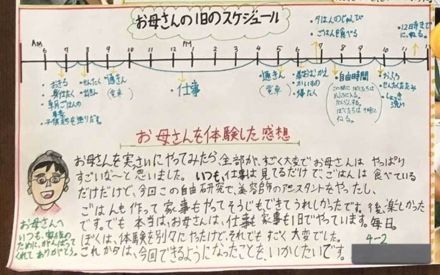 お母さんの1日のスケジュール
・夕ごはんのじゅんび
・ごはんを食べる
・12時までにねる。
AM
PM
6 7 8 9 10 11 12 1 2 3 4 5 6 7 8 9 10 11
・おきる
・身じたく
・朝ごはんの
・せんたく
仕事
・自由時間
・おふろ
お母さんを体験した感想
お母さんを実さいにやってみたら、全部が、すごく大変でお母さんは、やっぱり
すごいな〜と思いました。いつも、仕事は見てるだけで、ごはんは食べている
だけだけど、今回この自由研究で、美容師のアシスタントをやったし、
ごはんも作って家事もやってそうじもできてうれしかったです。後、楽しかった
です。でも本当は、お母さんは、仕事も家事も1日でやっています。毎日。
ぼくは、体験を別々にやったけど、それでもすごく大変でした。
これからは、今回できるようになったことを、いかしたいです。
お母さんへ
いつも、家族の
ために、がんばって
くれてありがとう。
4-2